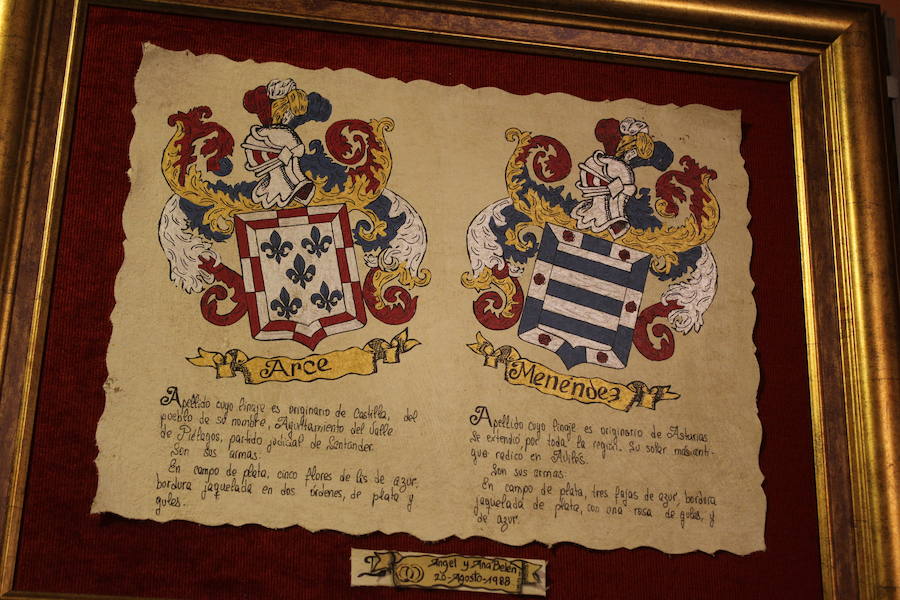 Arce
Apellido cuyo linaje es originario de Castilla, del
pueblo de su nombre, Ayuntamiento del Valle
de Piélagos, partido judicial de Santander.
Son sus armas:
En campo de plata, cinco flores de lis de azur,
bordura jaquelada en dos órdenes, de plata y
gules.
Menéndez
Apellido cuyo linaje es originario de Asturias
se extendió, por toda la región. Su solar más anti-
guo radicó en Avilés.
Son sus armas:
En campo de plata, tres fajas de azur, bordura
jaquelada de plata, con una rosa de gules, y
de azur.
Angel y Ana Belén
20-Agosto-1988